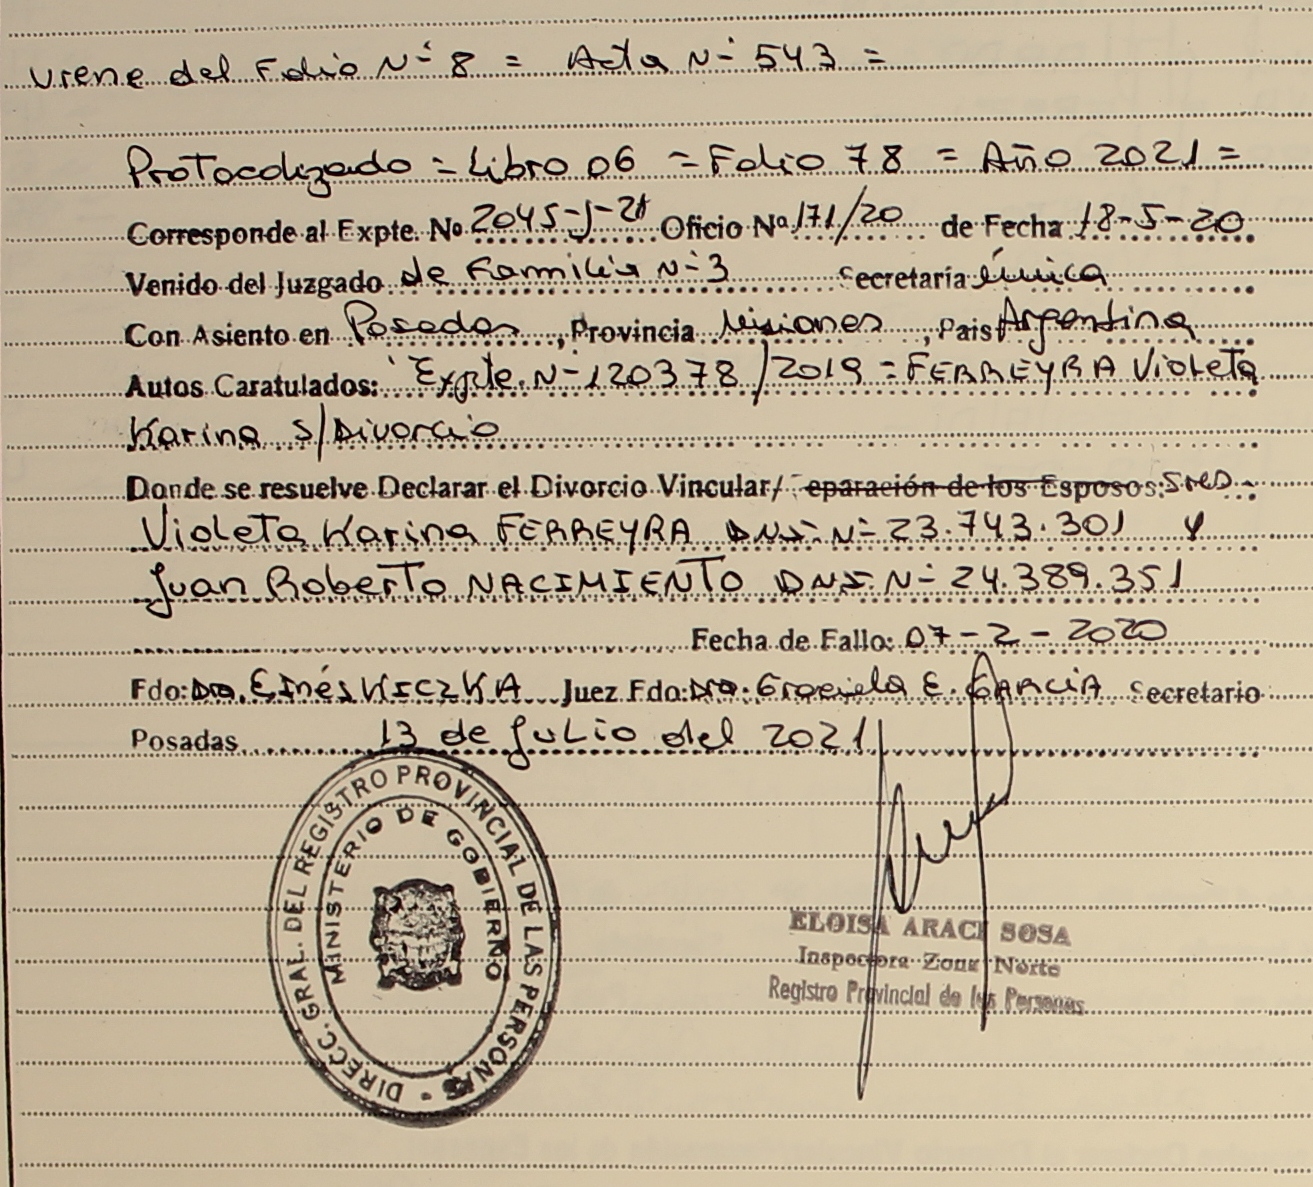 viene del Folio Nº 8 = Acta Nº 543 =
Protocolizado = Libro 06 = Folio 78 = Año 2021 =
Corresponde al Expte. Nº 2045-J-21 Oficio Nº 171/20 de Fecha 18-5-20
Venido del Juzgado de Familia Nº 3 Secretaría Única
Con Asiento en Posadas, Provincia Misiones, Pais Argentina
Autos Caratulados: Expte. Nº 120378/2019 = FERREYRA Violeta
Karina s/Divorcio
Donde se resuelve Declarar el Divorcio Vincular/ eparación de los Esposos: Sres.
Violeta Karina FERREYRA DNI. Nº 23.743.301 y
Juan Roberto NACIMIENTO DNI. Nº 24.389.351
Fecha de Fallo: 07-2-2020
Fdo: Dra. E Inés KICZKA Juez Fdo: Dra. Graciela E. GARCIA Secretario
Posadas 13 de Julio del 2021
DIRECC. GRAL. DEL REGISTRO PROVINCIAL DE LAS PERSONAS
MINISTERIO DE GOBIERNO
ELOISA ARACI SOSA
Inspectora Zona Norte
Registro Provincial de las Personas